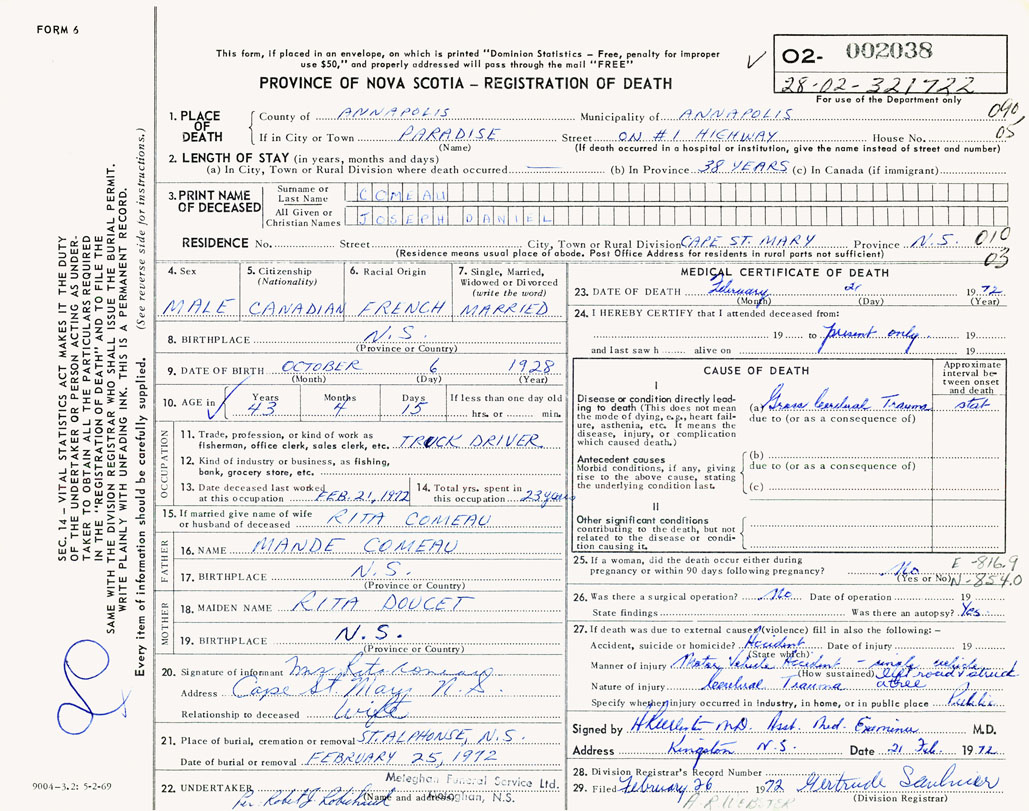 FORM 6
This form, if placed in an envelope, on which is printed "Dominion Statistics – Free, penalty for improper
use $50," and properly addressed will pass through the mail "FREE"
PROVINCE OF NOVA SCOTIA – REGISTRATION OF DEATH
O2- 002038
28-02-321722
For use of the Department only
1. PLACE OF DEATH
County of ANNAPOLIS Municipality of ANNAPOLIS 040
If in City or Town PARADISE Street ON #1 HIGHWAY House No. 05
(Name) (If death occurred in a hospital or institution, give the name instead of street and number)
2. LENGTH OF STAY (in years, months and days)
(a) In City, Town or Rural Division where death occurred — (b) In Province 38 YEARS (c) In Canada (if immigrant)
3. PRINT NAME OF DECEASED
Surname or Last Name COMEAU
All Given or Christian Names JOSEPH DANIEL
RESIDENCE No. Street City, Town or Rural Division CAPE ST. MARY Province N.S. 010
(Residence means usual place of abode. Post Office Address for residents in rural parts not sufficient) 03
4. Sex MALE
5. Citizenship (Nationality) CANADIAN
6. Racial Origin FRENCH
7. Single, Married, Widowed or Divorced (write the word) MARRIED
8. BIRTHPLACE N.S.
(Province or Country)
9. DATE OF BIRTH OCTOBER 6 1928
(Month) (Day) (Year)
10. AGE in Years 43 Months 4 Days 15 If less than one day old hrs. or min.
OCCUPATION
11. Trade, profession, or kind of work as
fisherman, office clerk, sales clerk, etc. TRUCK DRIVER
12. Kind of industry or business, as fishing,
bank, grocery store, etc.
13. Date deceased last worked
at this occupation FEB. 21, 1972
14. Total yrs. spent in
this occupation 23 years
15. If married give name of wife
or husband of deceased RITA COMEAU
FATHER
16. NAME MANDE COMEAU
17. BIRTHPLACE N.S.
(Province or Country)
MOTHER
18. MAIDEN NAME RITA DOUCET
19. BIRTHPLACE N.S.
(Province or Country)
20. Signature of informant Mrs Rita Comeau
Address Cape St Mary N.S.
Relationship to deceased Wife
21. Place of burial, cremation or removal ST. ALPHONSE, N.S.
Date of burial or removal FEBRUARY 25, 1972
22. UNDERTAKER Meteghan Funeral Service Ltd.
(Name and address) Meteghan, N.S.
Per Robert J. Robichaud
MEDICAL CERTIFICATE OF DEATH
23. DATE OF DEATH February 21 1972
(Month) (Day) (Year)
24. I HEREBY CERTIFY that I attended deceased from:
19 to present only 19
and last saw h alive on 19
CAUSE OF DEATH
Approximate interval between onset and death
I
Disease or condition directly leading to death (This does not mean the mode of dying, e.g., heart failure, asthenia, etc. It means the disease, injury, or complication which caused death.)
(a) Gross Cerebral Trauma stat
due to (or as a consequence of)
Antecedent causes
Morbid conditions, if any, giving rise to the above cause, stating the underlying condition last.
(b)
due to (or as a consequence of)
(c)
II
Other significant conditions
contributing to the death, but not related to the disease or condition causing it.
25. If a woman, did the death occur either during
pregnancy or within 90 days following pregnancy? No
(Yes or No)
E-816.9
N-854.0
26. Was there a surgical operation? No Date of operation 19
State findings Was there an autopsy? Yes
27. If death was due to external causes (violence) fill in also the following:–
Accident, suicide or homicide? Accident Date of injury 19
(State which)
Manner of injury Motor Vehicle Accident - single vehicle
(How sustained) left road & struck
a tree
Nature of injury Cerebral Trauma
Specify whether injury occurred in industry, in home, or in public place Public
Signed by M.D. Asst. Med. Examiner M.D.
Address Kingston N.S. Date 21 Feb. 1972
28. Division Registrar's Record Number
29. Filed February 26 1972 Gertrude Saulnier
A R WEBSTER (Division Registrar)
SEC. 14 – VITAL STATISTICS ACT MAKES IT THE DUTY
OF THE UNDERTAKER OR PERSON ACTING AS UNDER-
TAKER TO OBTAIN ALL THE PARTICULARS REQUIRED
IN THE "REGISTRATION OF DEATH" AND TO FILE THE
SAME WITH THE DIVISION REGISTRAR WHO SHALL ISSUE THE BURIAL PERMIT.
WRITE PLAINLY WITH UNFADING INK. THIS IS A PERMANENT RECORD.
Every item of information should be carefully supplied. (See reverse side for instructions.)
9004–3.2: 5-2-69